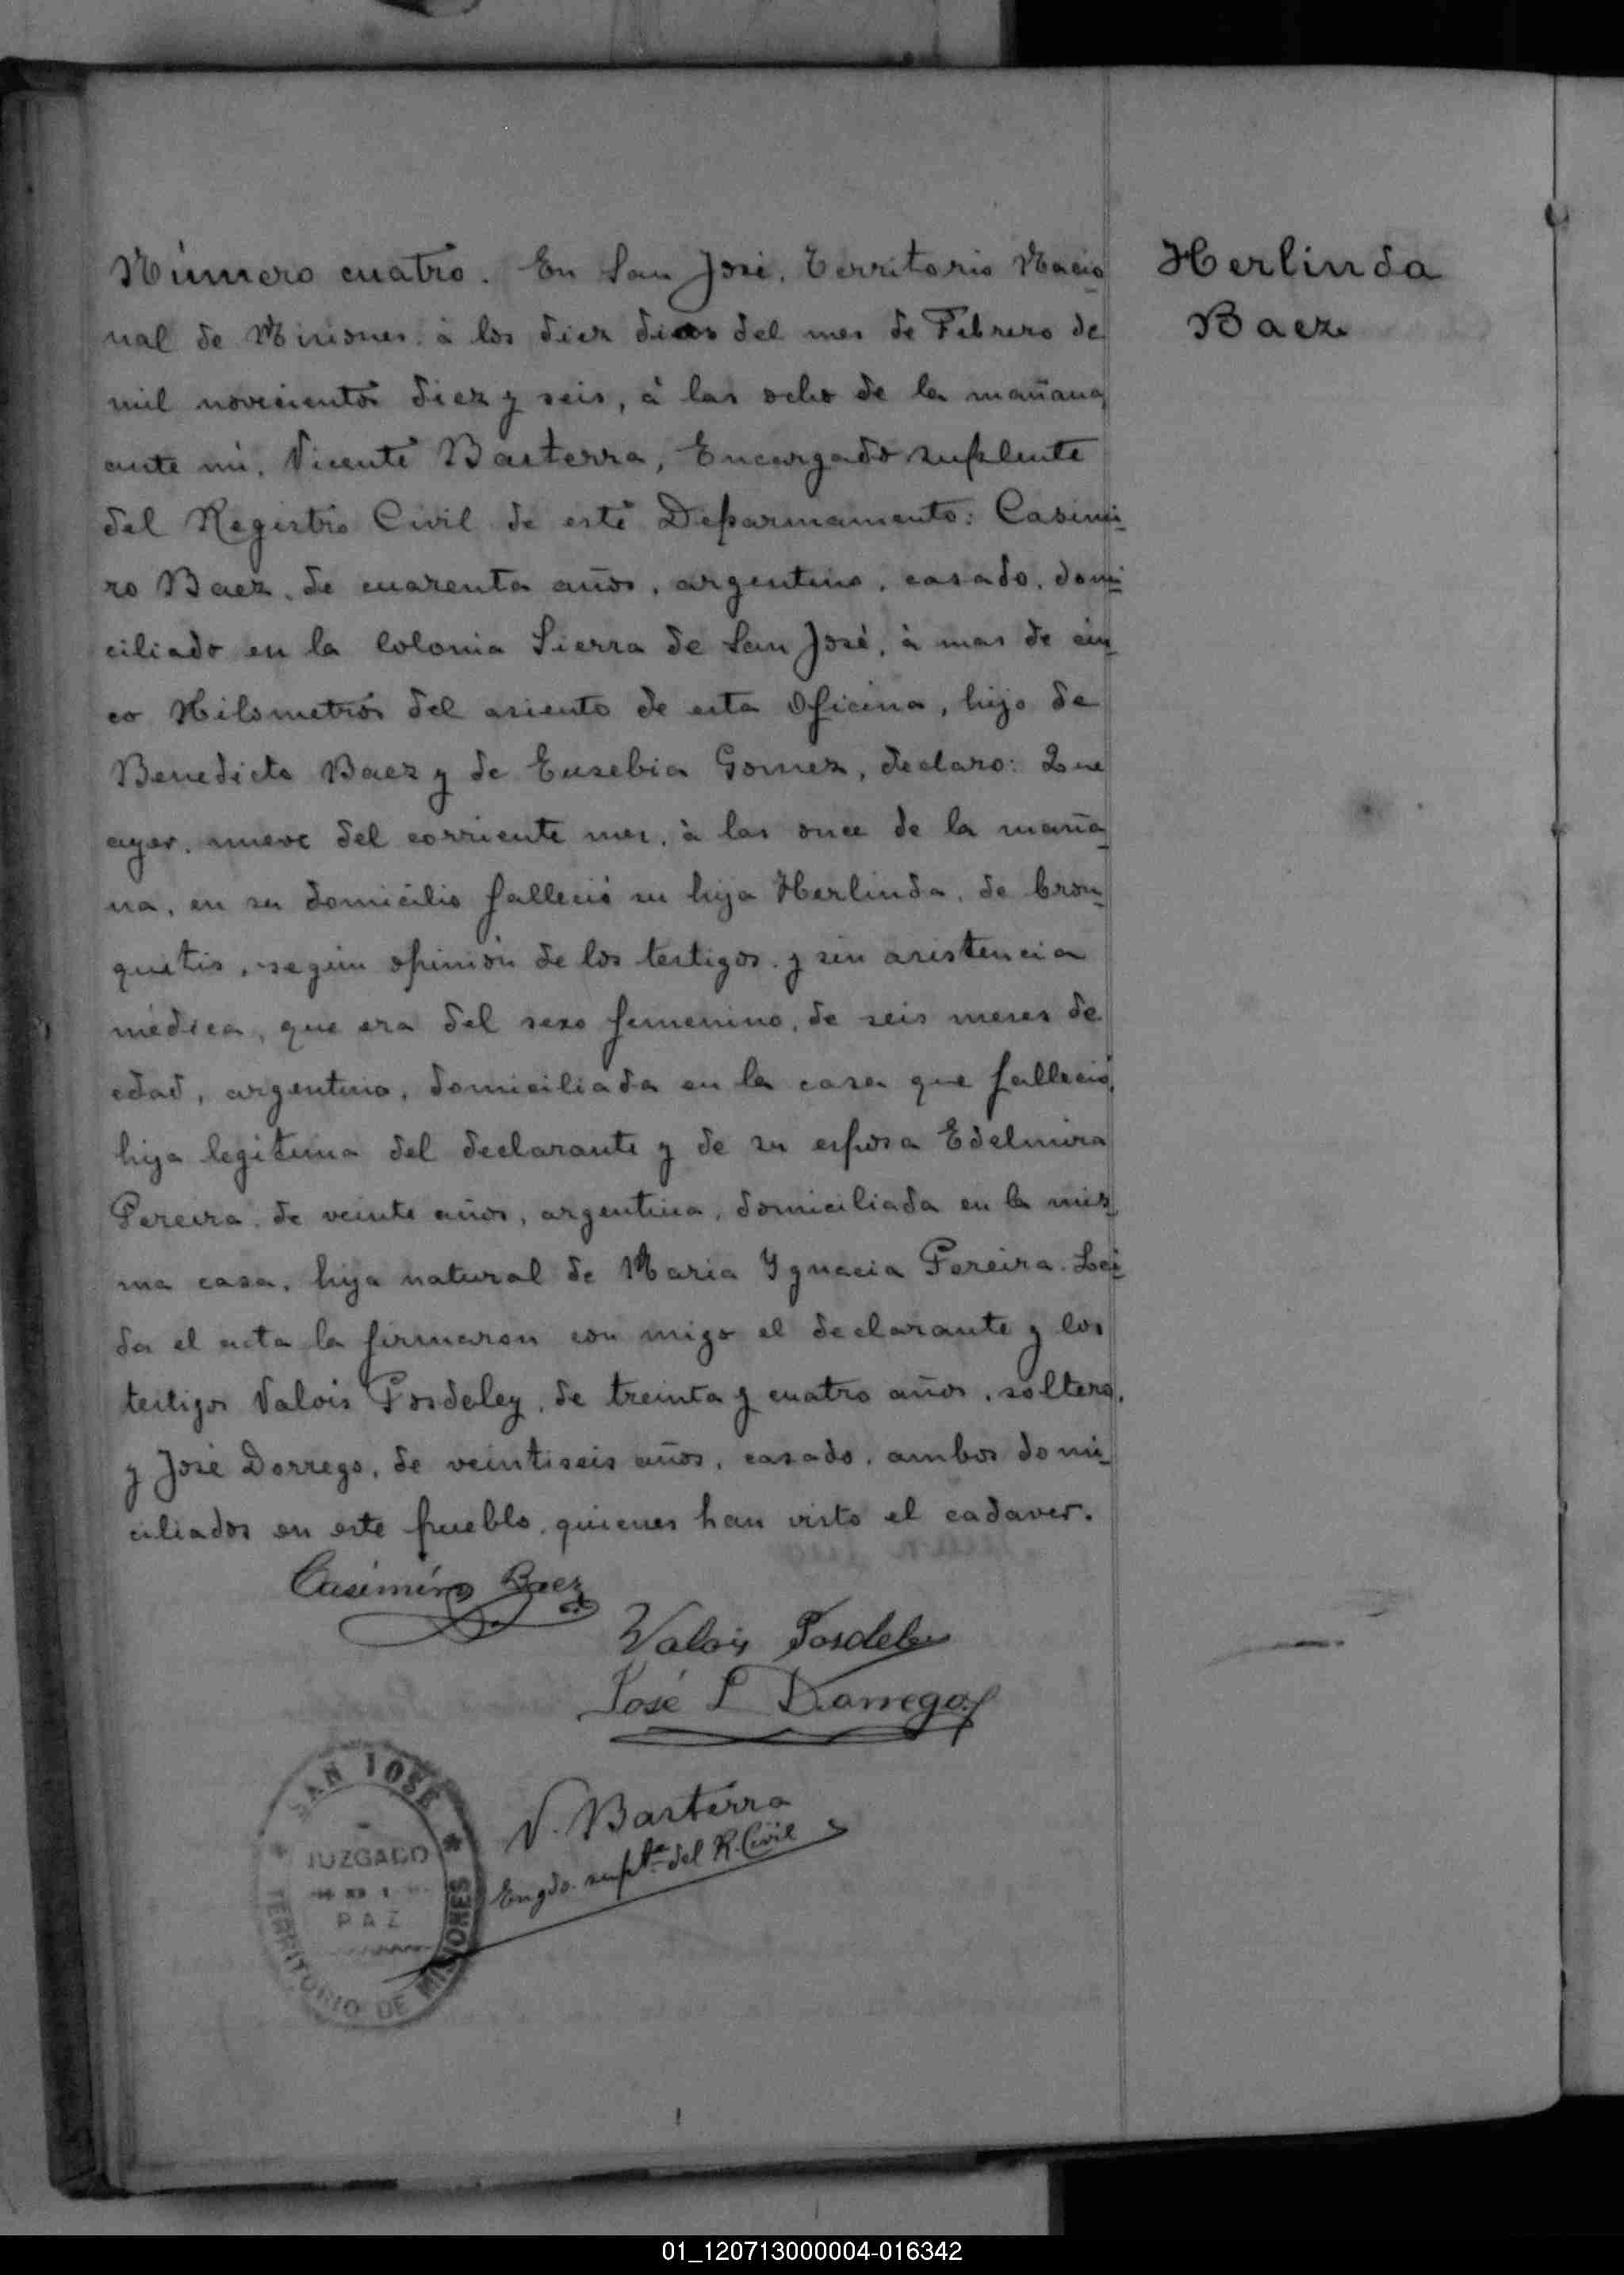 Número cuatro. En San José, Territorio Nacio
Herlinda
Baez
nal de Misiones à los diez dias del mes de Febrero de
mil novecientos diez y seis, à las ocho de la mañana,
ante mi, Vicente Basterra, Encargado suplente
del Registro Civil de este Deparmamento: Casimi-
ro Baez, de cuarenta años, argentino, casado, domi-
ciliado en la Colonia Sierra de San José, à mas de cin-
co Kilometros del asiento de esta Oficina, hijo de
Benedicto Baez y de Eusebia Gomez, declaro: Que
ayer, nueve del corriente mes, à las once de la maña-
na, en su domicilio falleció su hija Herlinda, de bron-
quitis, según opinión de los testigos y sin asistencia
médica, que era del sexo femenino, de seis meses de
edad, argentina, domiciliada en la casa que falleció,
hija legitima del declarante y de su esposa Edelmira
Pereira, de veinte años, argentina, domiciliada en la mis-
ma casa, hija natural de Maria Ygnacia Pereira. Lei-
da el acta la firmaron con migo el declarante y los
testigos Valois Posdeley, de treinta y cuatro años, soltero,
y José Dorrego, de veintiseis años, casado, ambos domi-
ciliados en este pueblo, quienes han visto el cadaver.
Casimiro Baez
Valois Posdeley
José L Dorrego
V. Basterra
Engdo. suplte. del R. Civil
SAN JOSÉ
JUZGADO
PAZ
TERRITORIO DE MISIONES
01_120713000004-016342